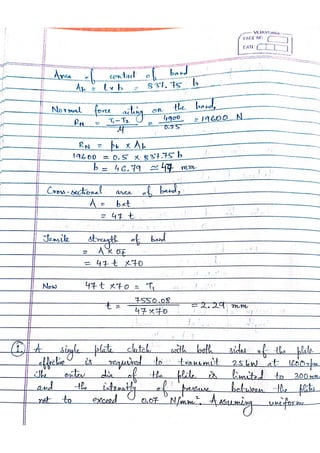 PAGE NO.
DATE
Area of contact of band
Ab = l x b = 837.75 b
Normal force acting on the band,
RN = T1-T2 / μ = 4900 / 0.25 = 19600 N
RN = pb x Ab
19600 = 0.5 x 837.75 b
b = 46.79 ≃ 47 mm
Cross-sectional area of band,
A = b x t
= 47 t
Tensile strength of band
= A x σt
= 47 t x 70
Now 47 t x 70 = T1
t = 7550.08 / 47 x 70 = 2.29 mm
① A single plate clutch with both sides of the plate
effective is required to transmit 25 kW at 1600 rpm
The outer dia of the plate is limited to 300 mm
and the intensity of pressure between the plates
not to exceed 0.07 N/mm². Assuming uniform